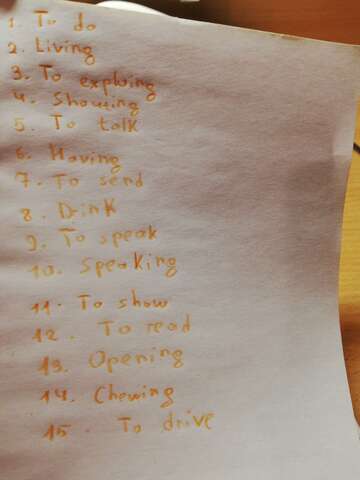 1. To do
2. Living
3. To exploing
4. Shouting
5. To talk
6. Having
7. To send
8. Drink
9. To speak
10. Speaking
11. To show
12. To read
13. Opening
14. Chewing
15. To drive